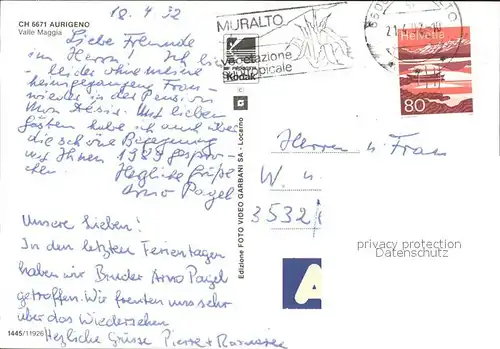 18.4.92
CH 6671 AURIGENO
Valle Maggia
Liebe Freunde
im Herrn! Ich bin
leider ohne meine
heimgegangene Frau
wieder in der Pension
Mon Désir. Mit lieben
Gästen habe ich auch über
die schöne Begegnung
mit Ihnen 1989 gespro-
chen. Herzliche Grüße
Arno Pagel
Unsere Lieben!
In den letzten Ferientagen
haben wir Bruder Arno Pagel
getroffen. Wir freuten uns sehr
über das Wiedersehen
Herzliche Grüsse Pierre +
1445/11926
Edizione FOTO VIDEO GARBANI SA - Locarno
Kodak
MURALTO
vegetazione
subtropicale
6600 MURALTO
Helvetia
80
Herrn u Frau
W. u.
3532
privacy protection
Datenschutz
A